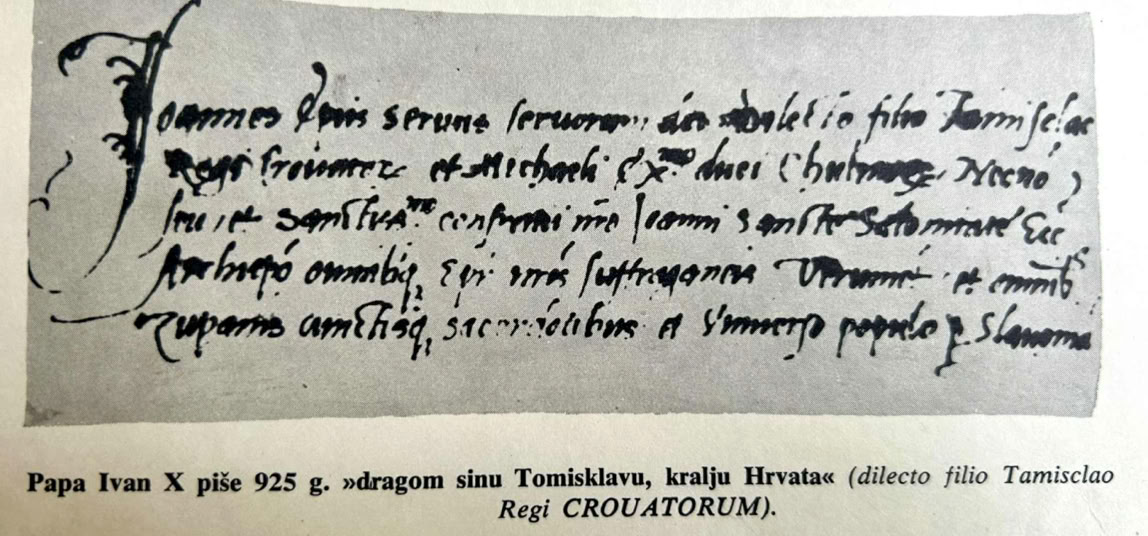 Joannes Ep̄us seruus seruorum dei dilecto filio Tamisclao
Regi Crouatorum et Michaeli
seu et Sanctissmo confratri nr̄o Joanni Sancte Salonitane
Archiep̄o omnibusq, Ep̄is nr̄is suffraganeis Verum et
Zupanis cunctisq, sacerdotibus et Vniuerso populo p Slauonia
Papa Ivan X piše 925 g. »dragom sinu Tomisklavu, kralju Hrvata« (dilecto filio Tamisclao
Regi CROUATORUM).